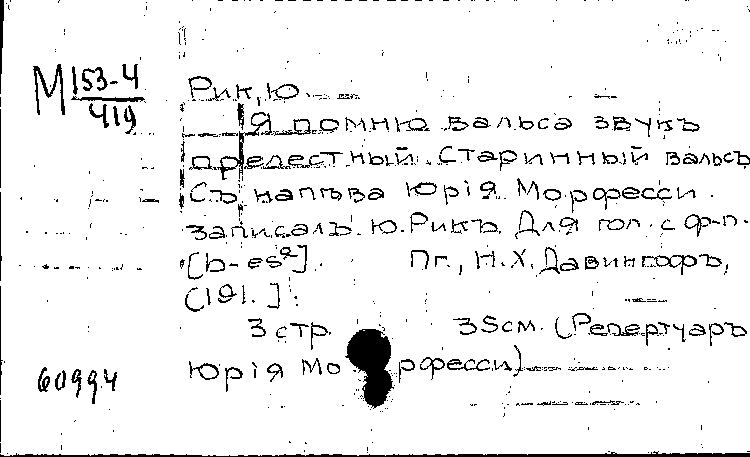 М 153-4
419
Рик, Ю.
Я помню вальса звукъ
прелестный. Старинный вальсъ
Съ напѣва Юрія Морфесси.
записалъ. Ю. Рикъ. Для гол. с ф-п.
[b-es²]. Пг., Н.Х. Давингофъ,
[191. ].
3 стр. 35 см. (Репертуаръ
Юрія Морфесси)
60994